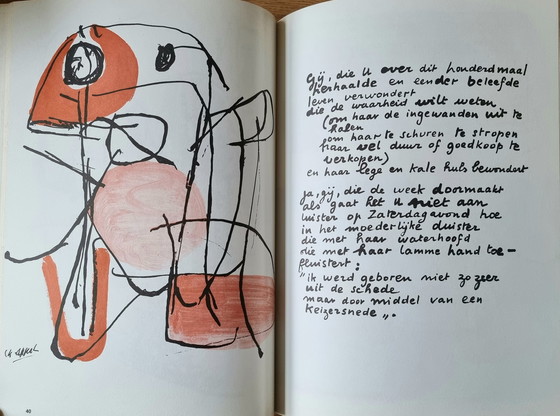 Gij, die U over dit honderdmaal
herhaalde en eender beleefde
leven verwondert
die de waarheid wilt weten
(om haar de ingewanden uit te
halen
om haar te schuren te stropen
haar vel duur of goedkoop te
verkopen)
en haar lege en kale huls bewondert
ja, gij, die de week doormaakt
als gaat het U niet aan
luister op Zaterdagavond hoe
in het moederlijke duister
die met haar waterhoofd
die met haar lamme hand toe-
fluistert:
"ik werd geboren niet zo zeer
uit de schede
maar door middel van een
keizersnede„.
40